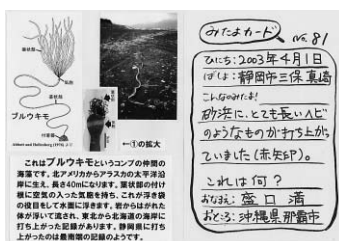 葉状部
気胞
茎状部
ブルウキモ
付着部
Abbott and Hollenberg (1976) より
←①の拡大
これはブルウキモというコンブの仲間の
海藻です。北アメリカからアラスカの太平洋沿
岸に生え、長さ40mになります。葉状部の付け
根に空気の入った気胞を持ち、これが浮き袋
の役目をして水面に浮きます。岩からはがれた
体が浮いて流され、東北から北海道の海岸に
打ち上がった記録があります。静岡県に打ち
上がったのは最南端の記録のようです。
みたよカード No.81
ひにち:2003年4月1日
ばしょ:静岡市三保真崎
こんなのみたよ!
砂浜に、とても長いヘビ
のようなものが打ち上がっ
ていました(赤矢印)。
これは何?
おなまえ: 盛口 満
おところ:沖縄県那覇市